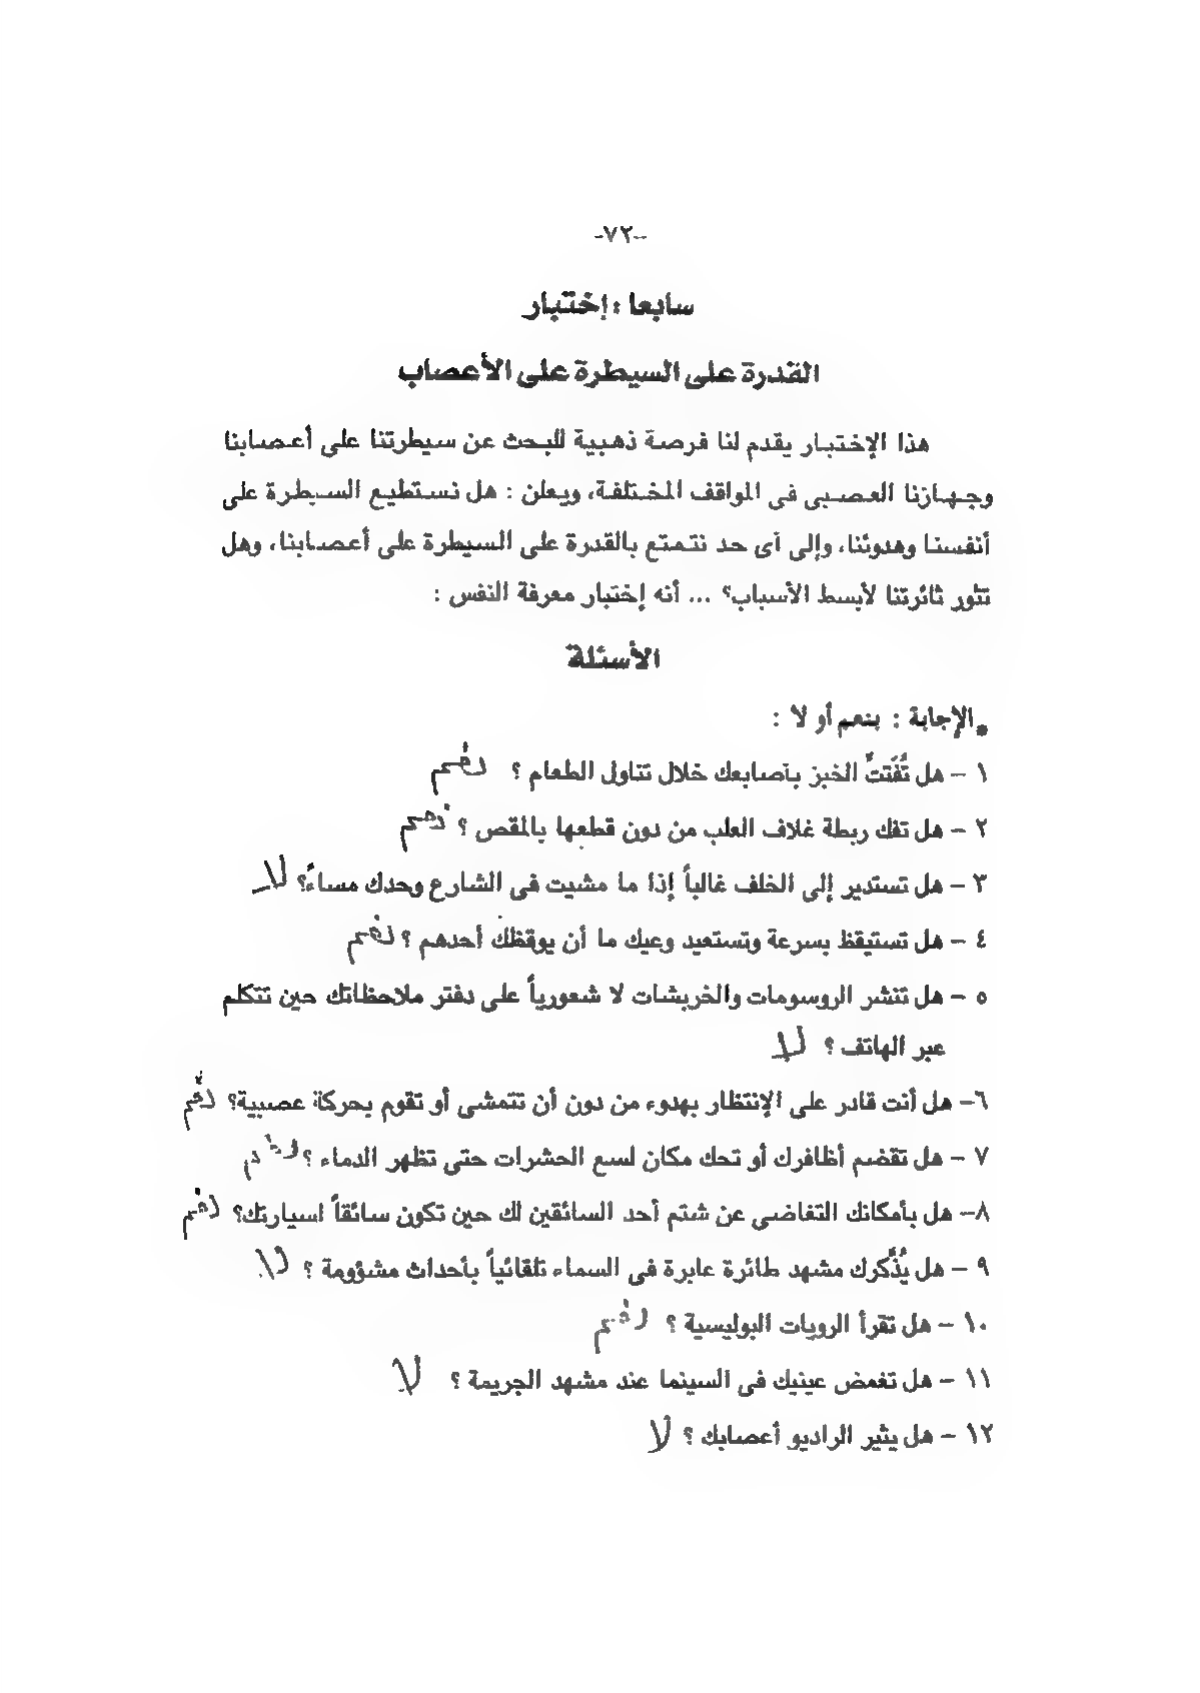 -٧٢-
سابعا : إختبار
القدرة على السيطرة على الأعصاب
هذا الإختبار يقدم لنا فرصة ذهبية للبحث عن سيطرتنا على أعصابنا
وجهازنا العصبى فى المواقف المختلفة، ويعلن : هل نستطيع السيطرة على
أنفسنا وهدوئنا، وإلى أى حد نتمتع بالقدرة على السيطرة على أعصابنا، وهل
تثور ثائرتنا لأبسط الأسباب؟ ... أنه إختبار معرفة النفس :
الأسئلة
*الإجابة : بنعم أو لا :
١ - هل تُفَتتُ الخبز بأصابعك خلال تناول الطعام ؟ نعم
٢ - هل تفك ربطة غلاف العلب من دون قطعها بالمقص ؟ نعم
٣ - هل تستدير إلى الخلف غالباً إذا ما مشيت فى الشارع وحدك مساءً؟ لا
٤ - هل تستيقظ بسرعة وتستعيد وعيك ما أن يوقظك أحدهم ؟ نعم
٥ - هل تنشر الروسومات والخربشات لا شعورياً على دفتر ملاحظاتك حين تتكلم
عبر الهاتف ؟ لا
٦- هل أنت قادر على الإنتظار بهدوء من دون أن تتمشى أو تقوم بحركة عصبية؟ نعم
٧ - هل تقضم أظافرك أو تحك مكان لسع الحشرات حتى تظهر الدماء ؟ نعم
٨- هل بأمكانك التغاضى عن شتم أحد السائقين لك حين تكون سائقاً اسيارتك؟ نعم
٩ - هل يُذَّكرك مشهد طائرة عابرة فى السماء تلقائياً بأحداث مشؤومة ؟ لا
١٠ - هل تقرأ الرويات البوليسية ؟ نعم
١١ - هل تغمض عينيك فى السينما عند مشهد الجريمة ؟ لا
١٢ - هل يثير الراديو أعصابك ؟ لا